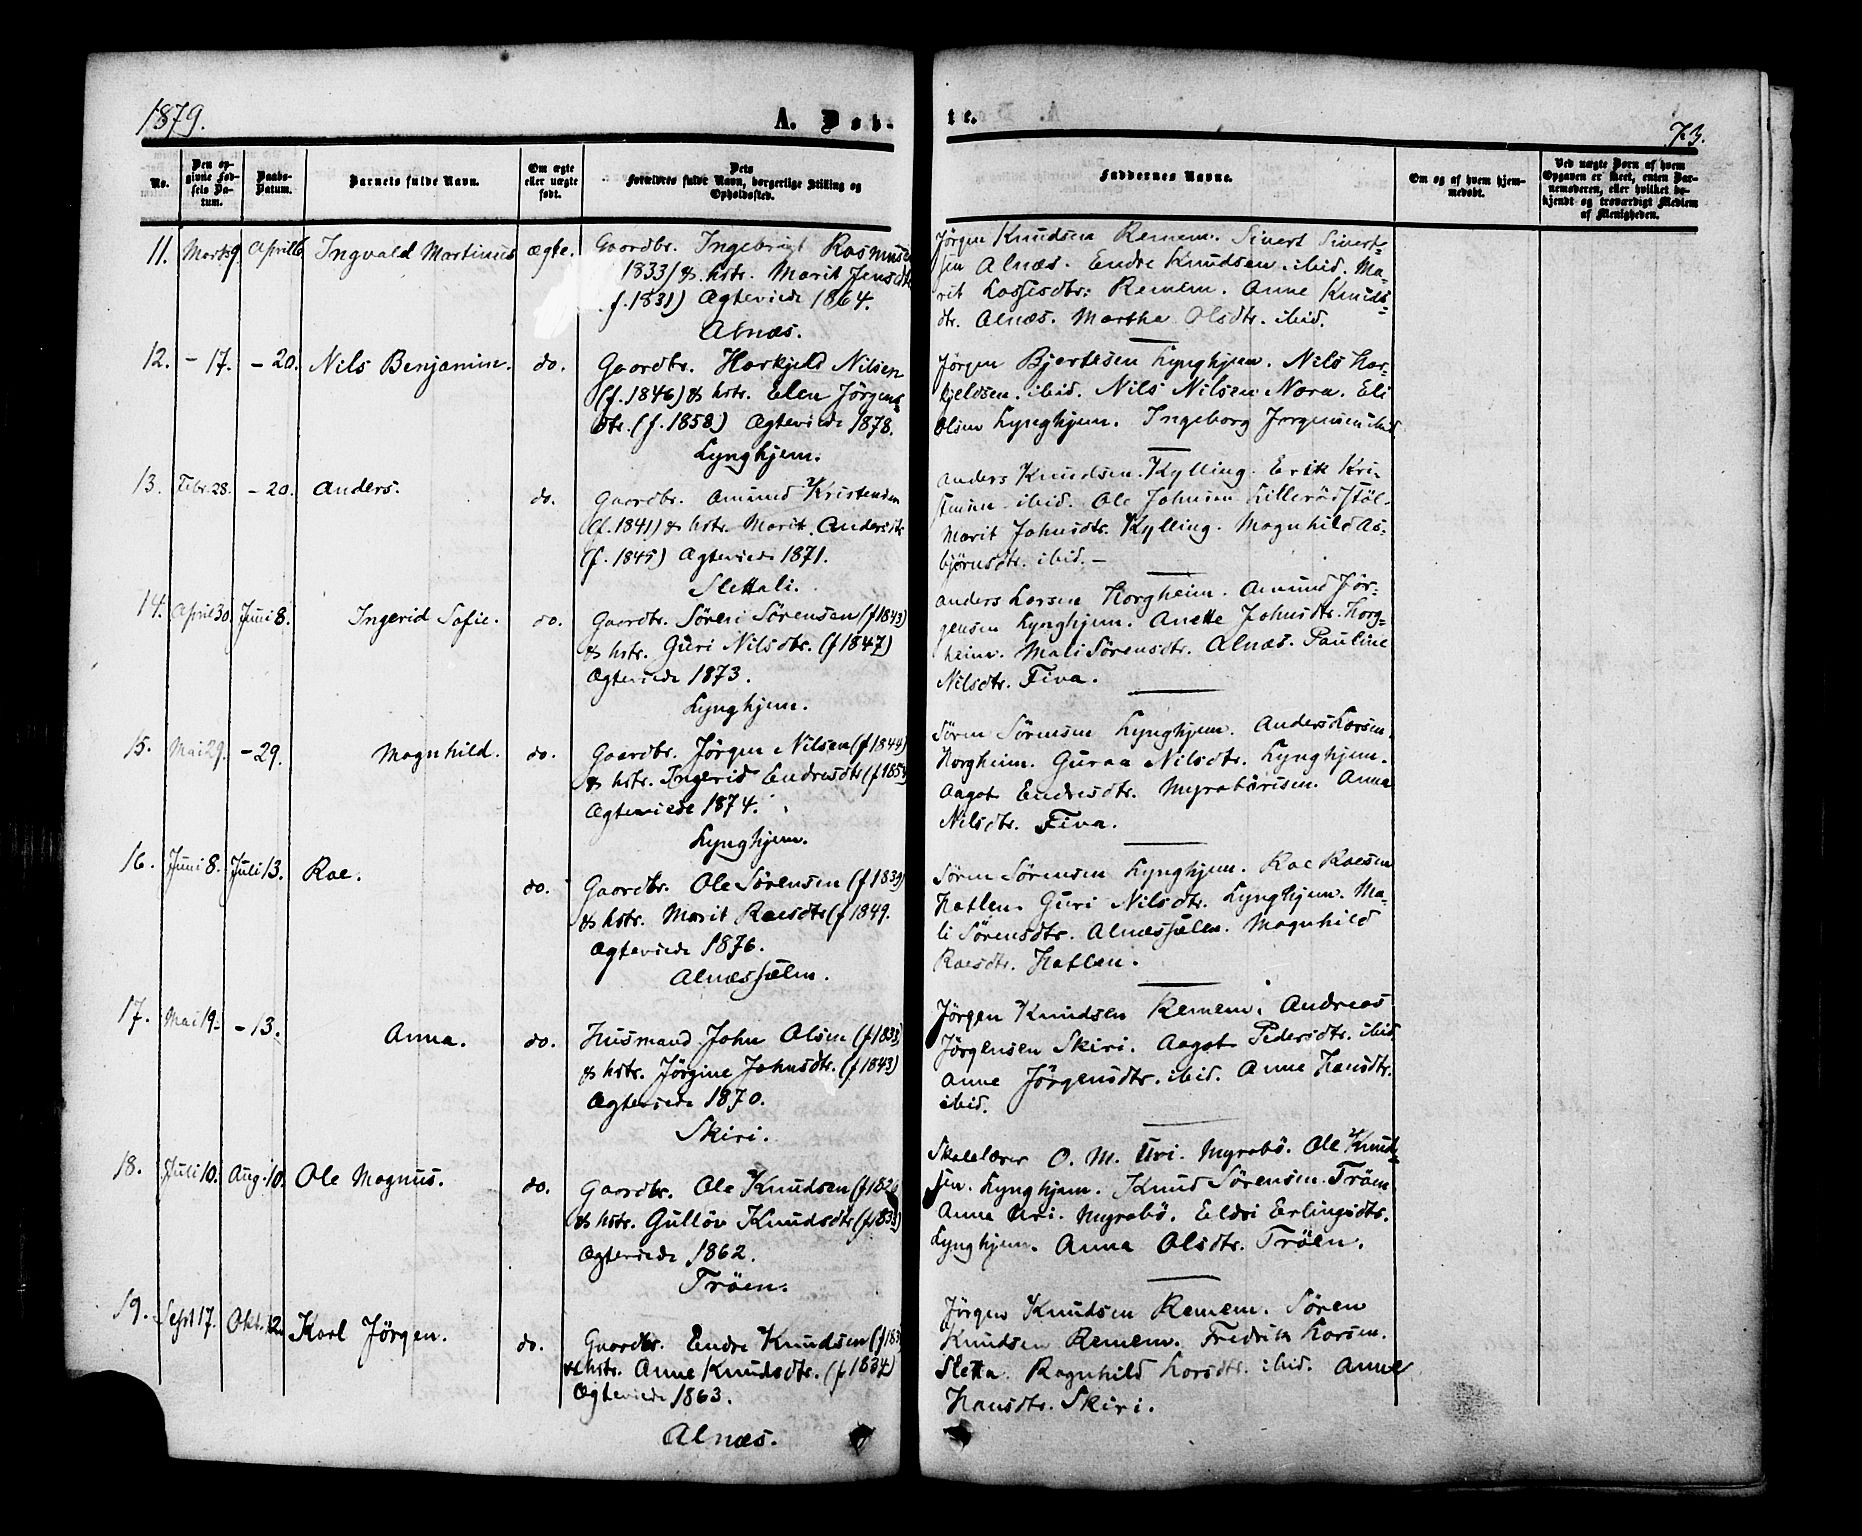 1879.
A. Døb-
te.
73.
No.
Den op-
givne Fød-
sels Da-
tum.
Daabs-
Datum.
Barnets fulde Navn.
Om ægte
eller uægte
født.
Dets
Forældres fulde Navn, borgerlige Stilling og
Opholdssted.
Faddernes Navne.
Om og af hvem hjem-
medøbt.
Ved uægte Børn af hvem
Opgaven er skeet, enten Bar-
nemoderen, eller hvilket be-
kjendt og troværdigt Medlem
af Menigheden.
11. Marts 9 April 6 Ingvald Martinus ægte. Gaardbr. Ingebrigt Rasmusen
1833) & hstr. Marit Jensdtr.
f. 1831) Ægteviede 1864.
Alnæs.
Jörgen Knudsen Remem. Sivert Sivert-
sen Alnæs. Endre Knudsen ibid. Ma-
rit Lassesdtr. Remem. Anne Knuds-
dtr. Alnæs. Martha Olsdtr. ibid.
12. - 17. - 20. Nils Benjamin. do. Gaardbr. Herkjeld Nilsen
(f. 1846) & hstr. Elen Jörgens-
dtr. (f. 1858) Ægteviede 1878.
Lynghjem.
Jörgen Bjertesen Lynghjem. Nils Her-
kjeldsen. ibid. Nils Nilsen Nora. Eli
Olsen Lynghjem. Ingeborg Jörgensen ibid
13. Febr. 28. - 20. Anders. do. Gaardbr. Amund Kristensen
(f. 1841) & hstr. Marit Andersdtr
(f. 1845) Ægteviede 1871.
Slettali.
Anders Knudsen Kylling. Erik Kri-
stensen ibid. Ole Johnsen Lilleröd
Marit Johnsdtr. Kylling. Magnhild As-
björnsdtr. ibid. -
14. April 30. Juni 8. Ingerid Sofie. do. Gaardbr. Sören Sörensen (f 1843)
& hstr. Guri Nilsdtr. (f 1847)
Ægteviede 1873.
Lynghjem.
Anders Larsen Horgheim. Amund Jör-
gensen Lynghjem. Anette Johnsdtr. Horg-
heim. Mali Sörensdtr. Alnæs. Pauline
Nilsdtr. Fiva.
15. Mai 29. - 29. Magnhild. do. Gaardbr. Jörgen Nilsen (f 1844)
& hstr. Ingerid Endresdtr (f 185
Ægteviede 1874.
Lynghjem.
Sören Sörensen Lynghjem. Anders Larsen.
Horgheim. Guraa Nilsdtr. Lynghjem.
Aagot Endresdtr. Anna
Nilsdtr. Fiva.
16. Juni 8. Juli 13. Rae. do. Gaardbr. Ole Sörensen (f 1839)
& hstr. Marit Raesdtr (f 1849.
Ægteviede 1876.
Alnæssælen.
Sören Sörensen Lynghjem. Rae Raesen
Hatlen. Guri Nilsdtr. Lynghjem. Ma-
li Sörensdtr. Alnæssælen. Magnhild
Raesdtr. Hatlen.
17. Mai 19. - 13. Anna. do. Husmand John Olsen (f 1833)
& hstr. Jörgine Johnsdtr. (f 1843)
Ægteviede 1870.
Skiri.
Jörgen Knudsen Remem. Andreas
Jörgensen Skiri. Aagot Pedersdtr. ibid
Anne Jörgensdtr. ibid. Anne Hansdtr.
ibid.
18. Juli 10. Aug. 10. Ole Magnus. do. Gaardbr. Ole Knudsen (f 182
& hstr. Gullöv Knudsdtr (f 183
Ægteviede 1862.
Tröen.
Skolelærer O. M. Uri. Myrabö. Ole Knud-
sen. Lynghjem. Knud Sörensen Tröen.
Anna Uri. Myrabö. Eldri Erlingsdtr.
Lynghjem. Anna Olsdtr. Tröen.
19. Sept 17. Okt. 12. Karl Jörgen. do. Gaardbr. Endre Knudsen (f 183
& hstr. Anne Knudsdtr. (f 1834)
Ægteviede 1863.
Alnæs.
Jörgen Knudsen Remem. Sören
Knudsen Remem. Fredrik Larsen.
Sletta. Ragnhild Larsdtr. ibid. Anne
Hansdtr. Skiri.